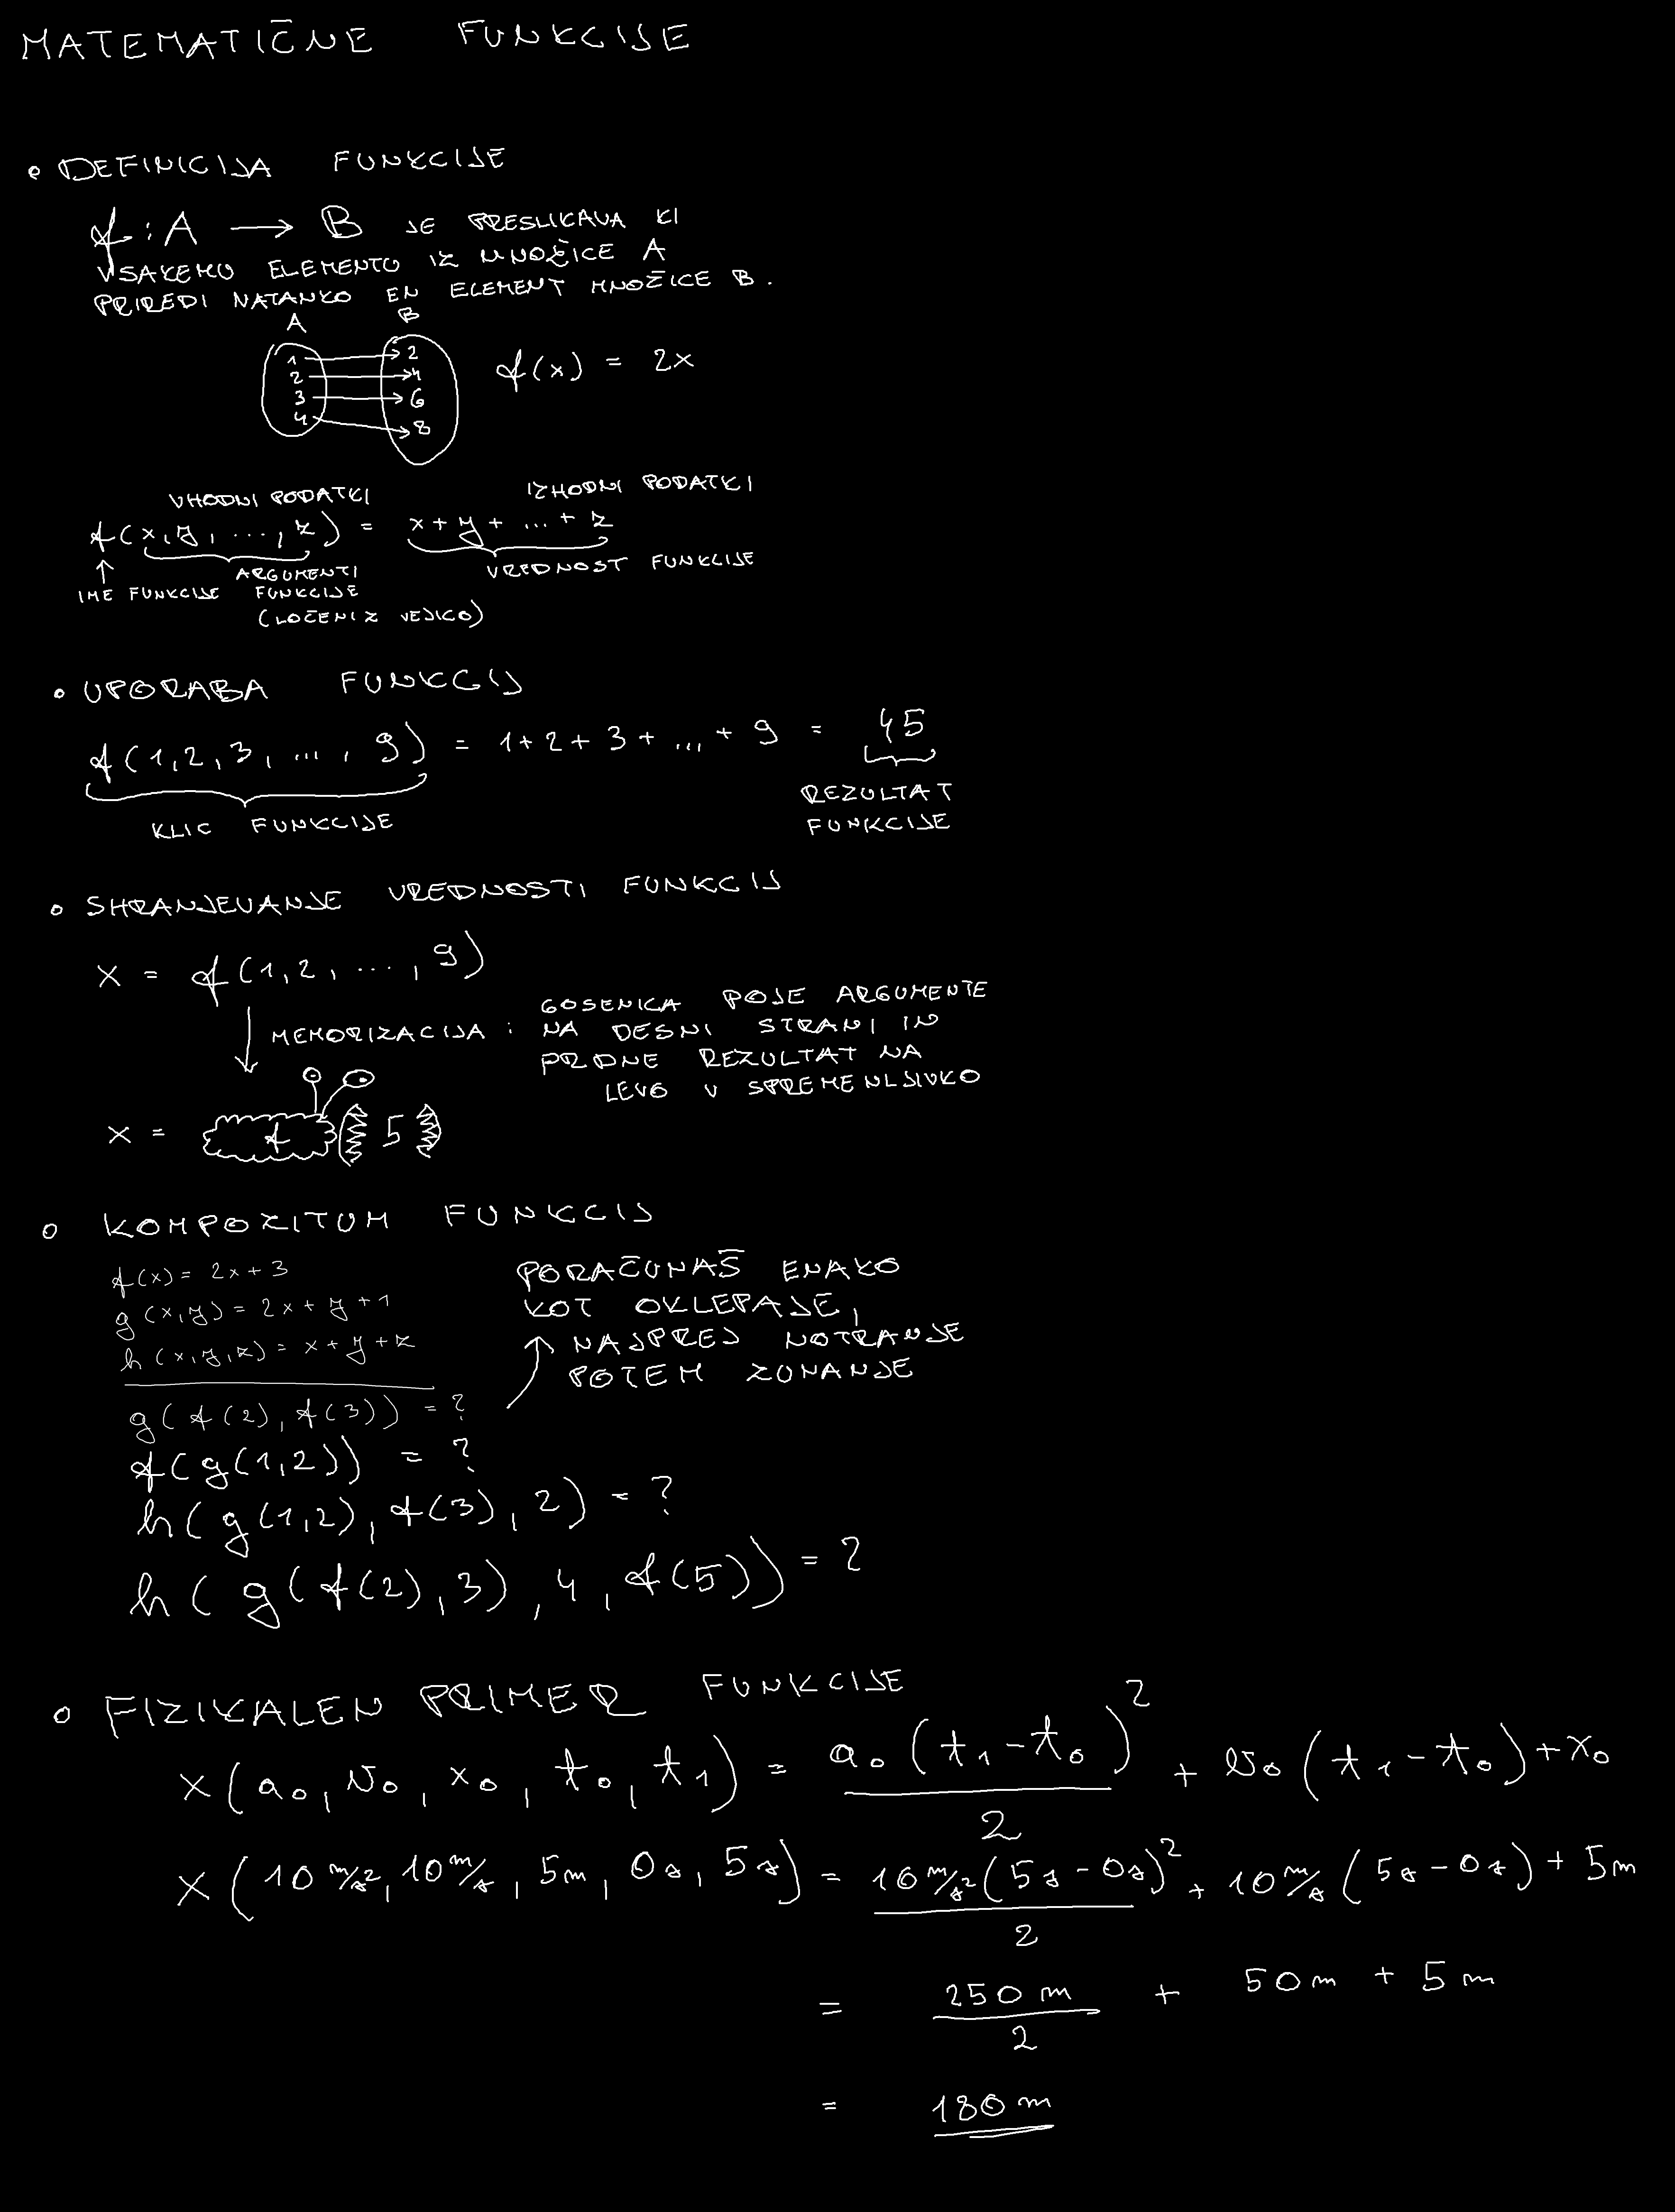 MATEMATIČNE FUNKCIJE
• DEFINICIJA FUNKCIJE
f : A → B JE PRESLIKAVA KI
VSAKEMU ELEMENTO IZ MNOŽICE A
PRIREDI NATANKO EN ELEMENT MNOŽICE B.
A B
1 2
2 4
3 6
4 8
f(x) = 2x
VHODNI PODATKI IZHODNI PODATKI
f(x,y, ..., z) = x+y+ ... + z
ARGUMENTI VREDNOST FUNKCIJE
IME FUNKCIJE FUNKCIJE
(LOČENI Z VEJICO)
• UPORABA FUNKCIJ
f(1,2,3, ..., 9) = 1+2+3+ ... + 9 = 45
KLIC FUNKCIJE
REZULTAT
FUNKCIJE
• SHRANJEVANJE VREDNOSTI FUNKCIJ
x = f(1,2, ..., 9)
MEMORIZACIJA :
GOSENICA POJE ARGUMENTE
NA DESNI STRANI IN
PRDNE REZULTAT NA
LEVO V SPREMENLJIVKO
x = f ( 5 )
• KOMPOZITUM FUNKCIJ
f(x) = 2x+3
g(x,y) = 2x+y+1
h(x,y,z) = x+y+z
PORAČUNAŠ ENAKO
KOT OKLEPAJE,
NAJPREJ NOTRANJE
POTEM ZUNANJE
g(f(2), f(3)) = ?
f(g(1,2)) = ?
h(g(1,2), f(3), 2) = ?
h(g(f(2),3), 4, f(5)) = ?
• FIZIKALEN PRIMER FUNKCIJE
x(a₀, v₀, x₀, t₀, t₁) = a₀(t₁-t₀)² / 2 + v₀(t₁-t₀)+x₀
x(10 m/s², 10 m/s, 5m, 0s, 5s) = 10 m/s²(5s-0s)² / 2 + 10 m/s (5s-0s) + 5m
= 250 m / 2 + 50m + 5m
= 180 m